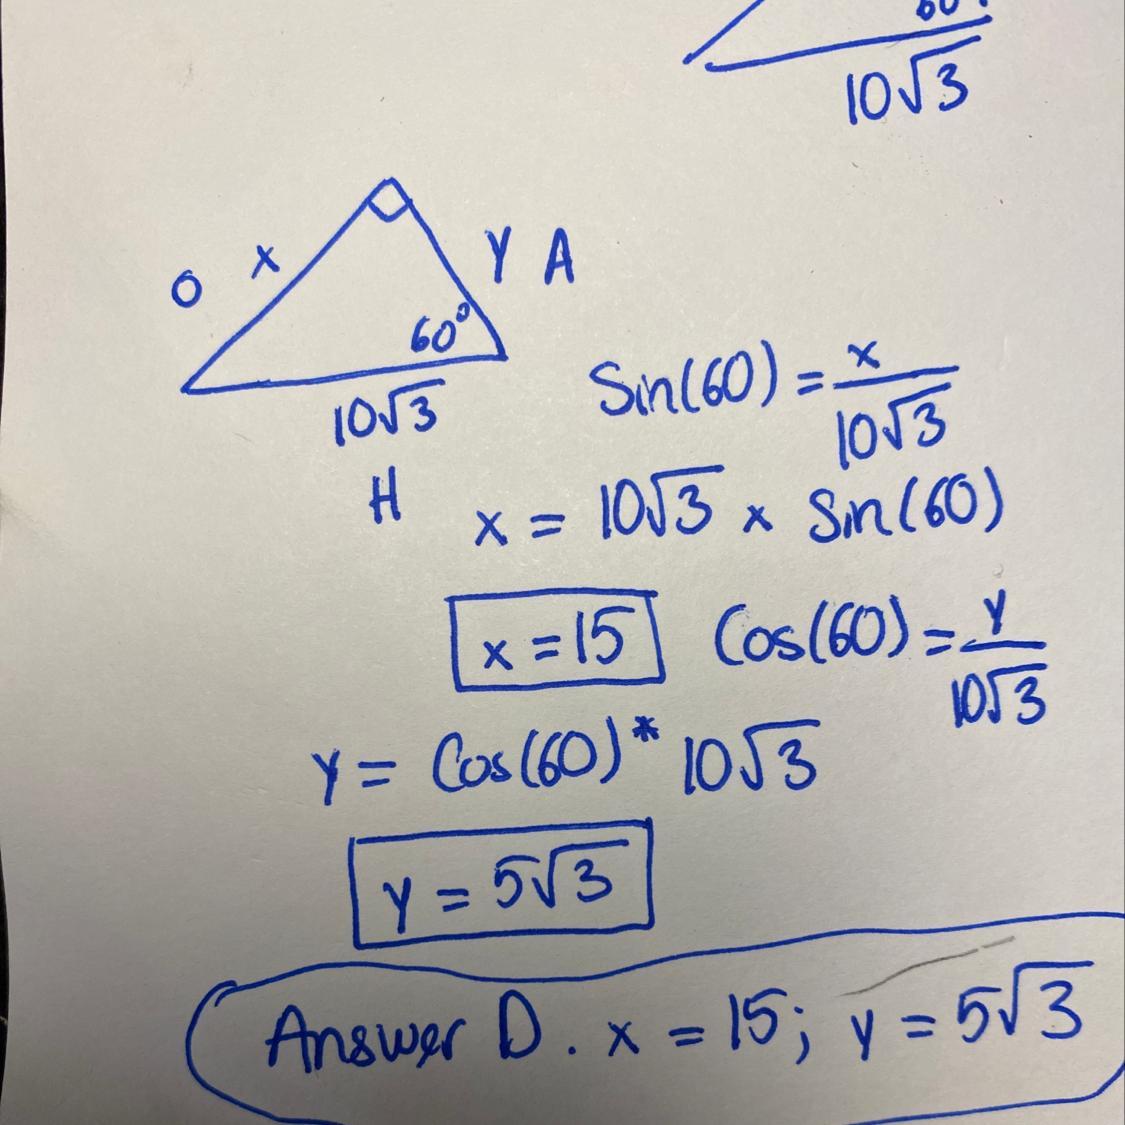 60°
10√3
O x Y A
60°
10√3
H
Sin(60) = x/10√3
x = 10√3 x Sin(60)
x = 15
Cos(60) = y/10√3
y = Cos(60) * 10√3
y = 5√3
Answer D. x = 15; y = 5√3